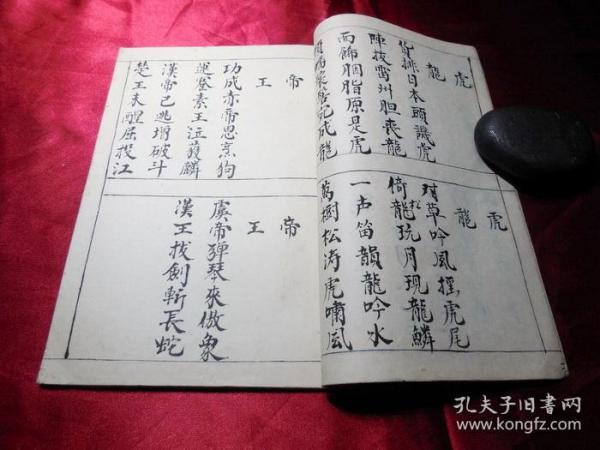 虎 龍
皆排日本頭識虎
陣拔雷州胆喪龍
面飾胭脂原是虎
成龍
虎 龍
对草吟風摇虎尾
倚松龍玩月現龍鱗
一声笛韻龍吟水
萬樹松涛虎嘯風
帝 王
功成赤帝思烹狗
素王泣獲麟
漢帝已逃增破斗
楚王未醒屈投江
帝 王
虞帝弹琴來傲象
漢王拔劍斬長蛇
孔夫子旧书网
www.kongfz.com